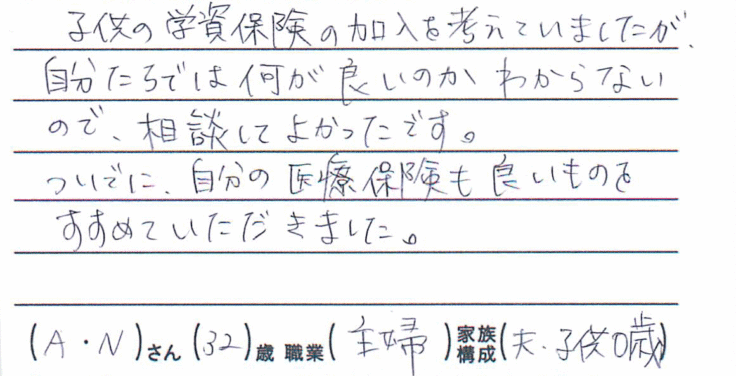 子供の学資保険の加入を考えていましたが、
自分たちでは何が良いのかわからない
ので、相談してよかったです。
ついでに、自分の医療保険も良いものを
すすめていただきました。
(A・N)さん(32)歳 職業(主婦)家族構成(夫・子供0歳)